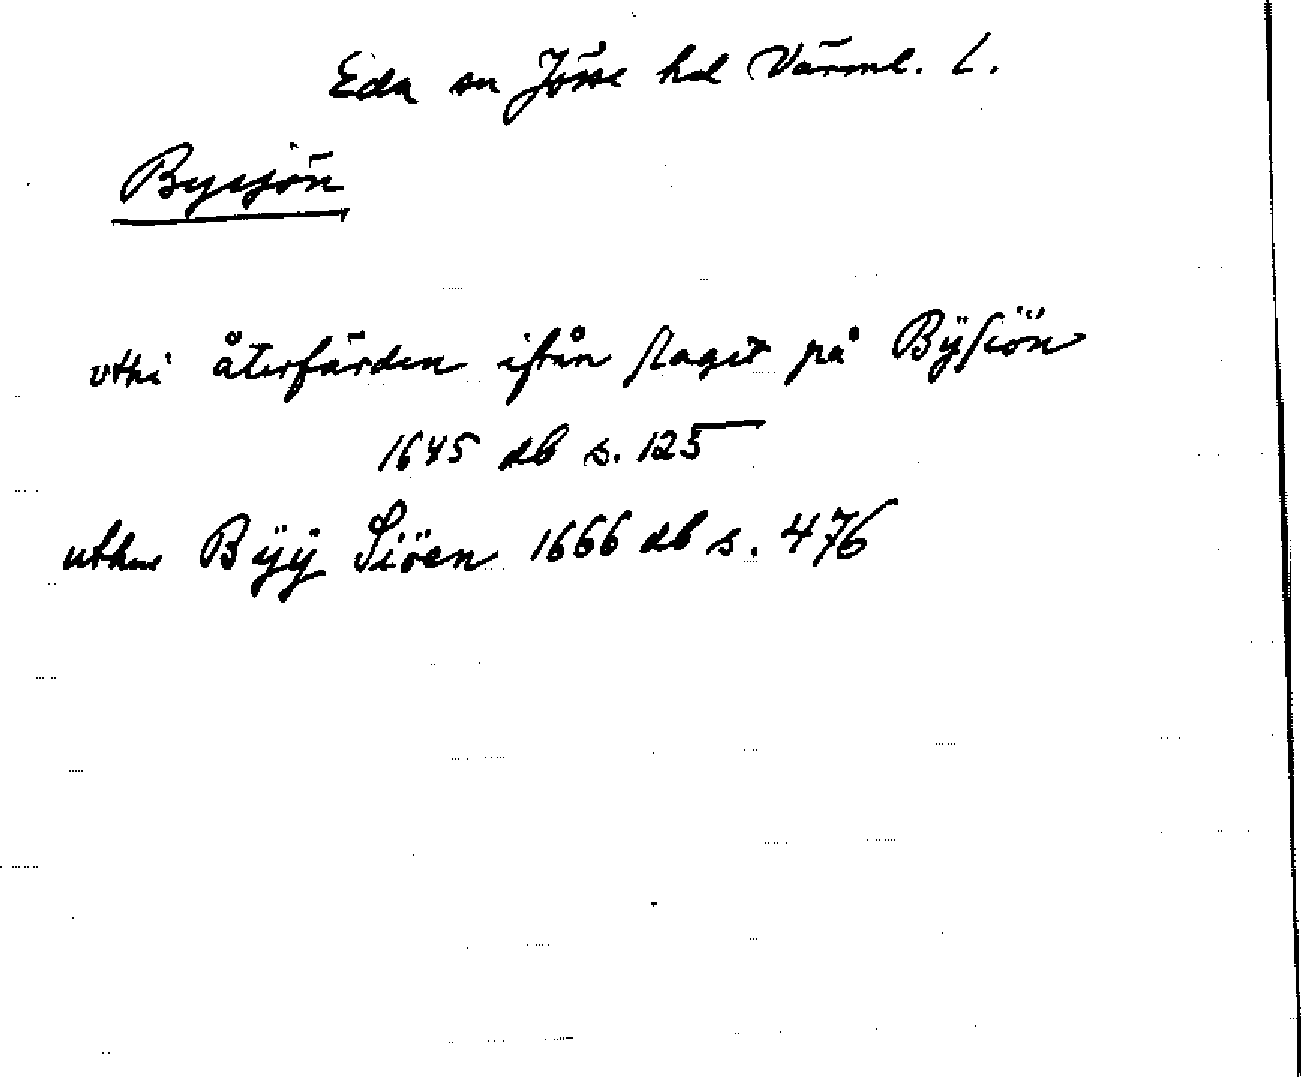 Eda sn Jösse hd Värml. L.
Bysjön
vthi återfärden ifrån slaget på Bÿsiön
1645 db s. 125
uthur Bÿÿ Siöen 1666 db s. 476